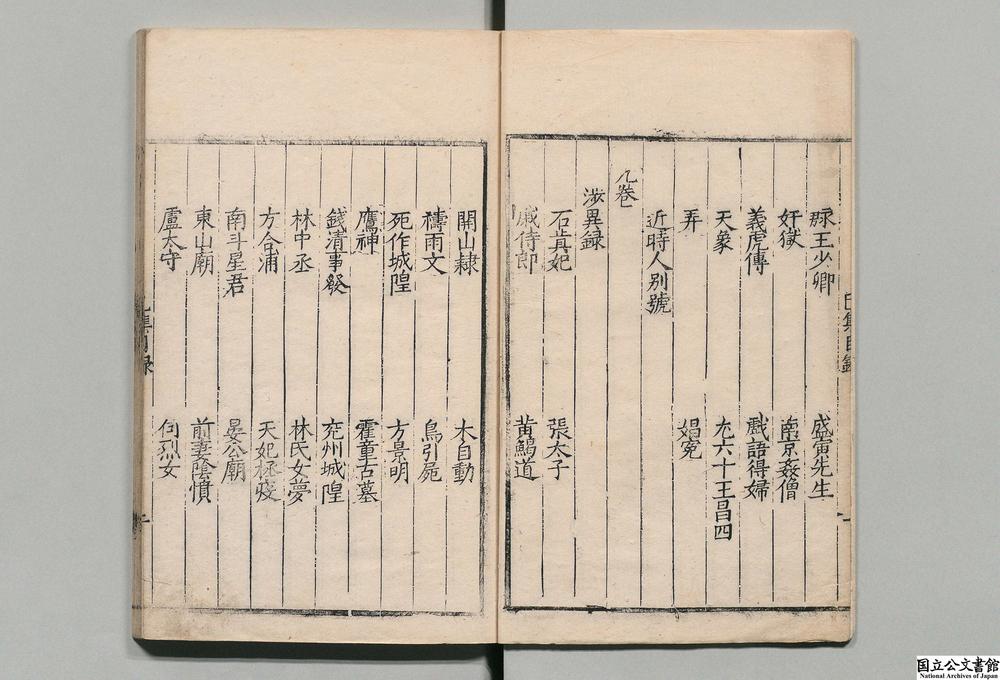 王少卿 盛寅先生
奸獄 南京姦僧
義虎傳 戲語得婦
天象 尤六十王昌四
弄 娼冤
近時人別號
八卷
涉異録
石真妃 張太子
戚侍郎 黄鱔道
開山隷 木自動
禱雨文 鳥引屍
死作城隍 方景明
鷹神 霍童古墓
錢清事發 兖州城隍
林中丞 林氏女夢
方合浦 天妃拯疫
南斗星君 晏公廟
東山廟 前妻陰憤
盧太守 烈女
国立公文書館
National Archives of Japan